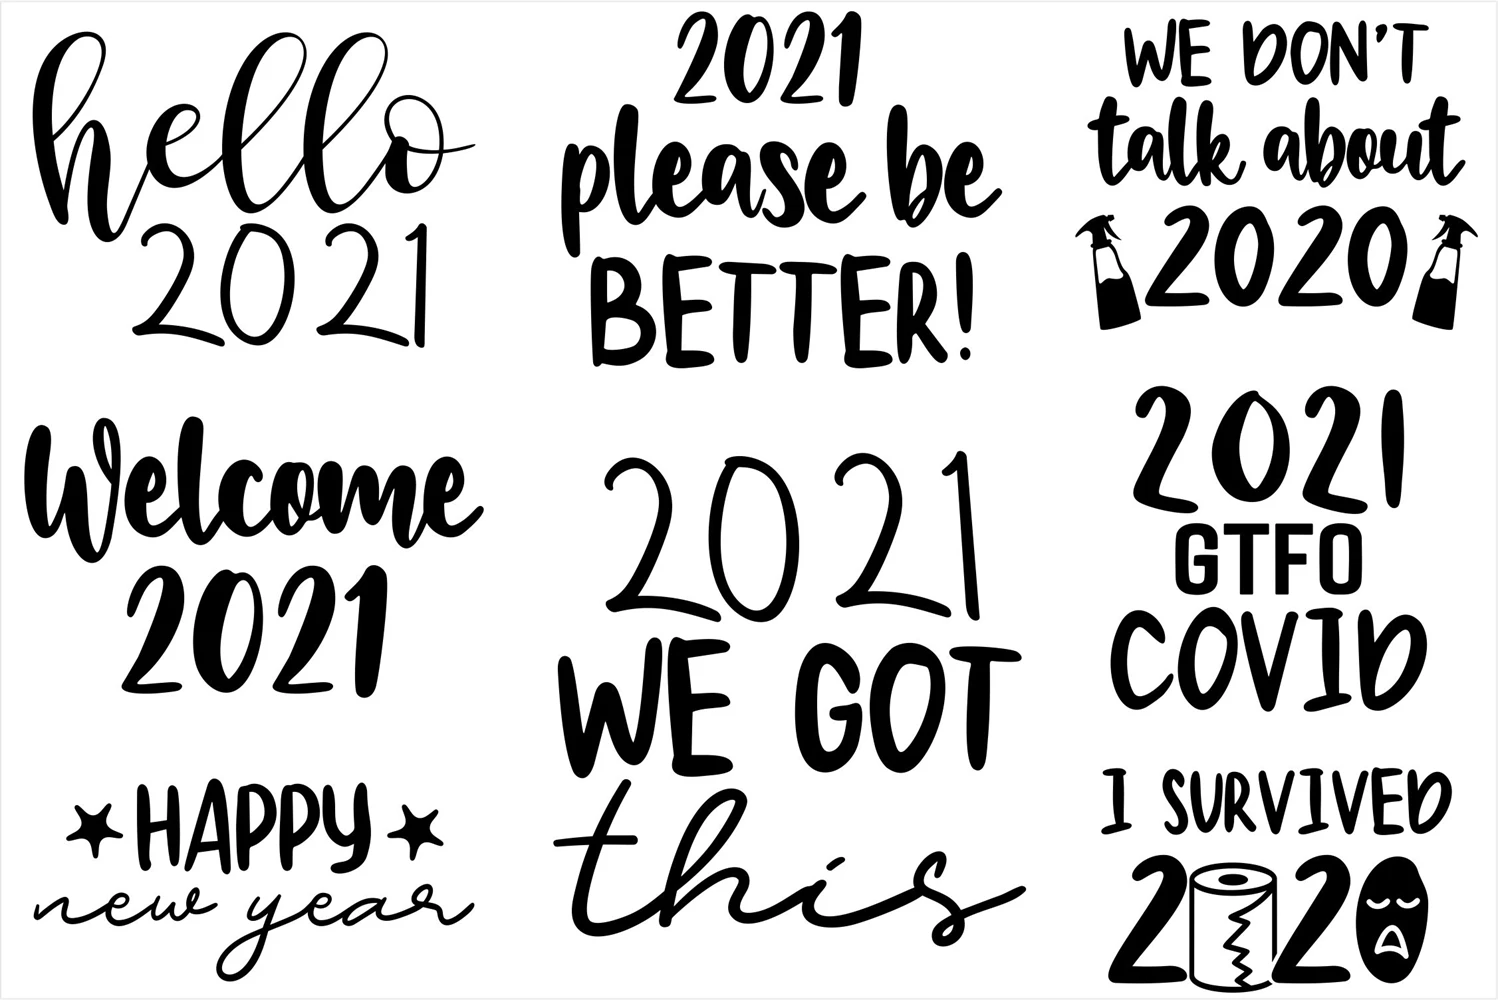 hello
2021
2021
please be
BETTER!
WE DON'T
talk about
2020
Welcome
2021
2021
WE GOT
this
2021
GTFO
COVID
HAPPY
new year
I SURVIVED
2020